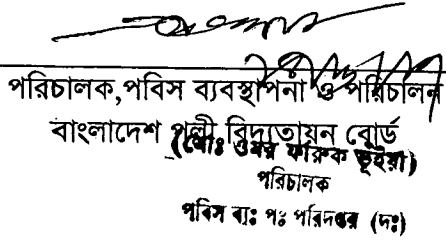 পরিচালক,পবিস ব্যবস্থাপনা ও পরিচালন
বাংলাদেশ পল্লী বিদ্যুতায়ন বোর্ড
(মোঃ ওমর ফারুক ভূইয়া)
পরিচালক
পবিস ব্যঃ পঃ পরিদপ্তর (দঃ)